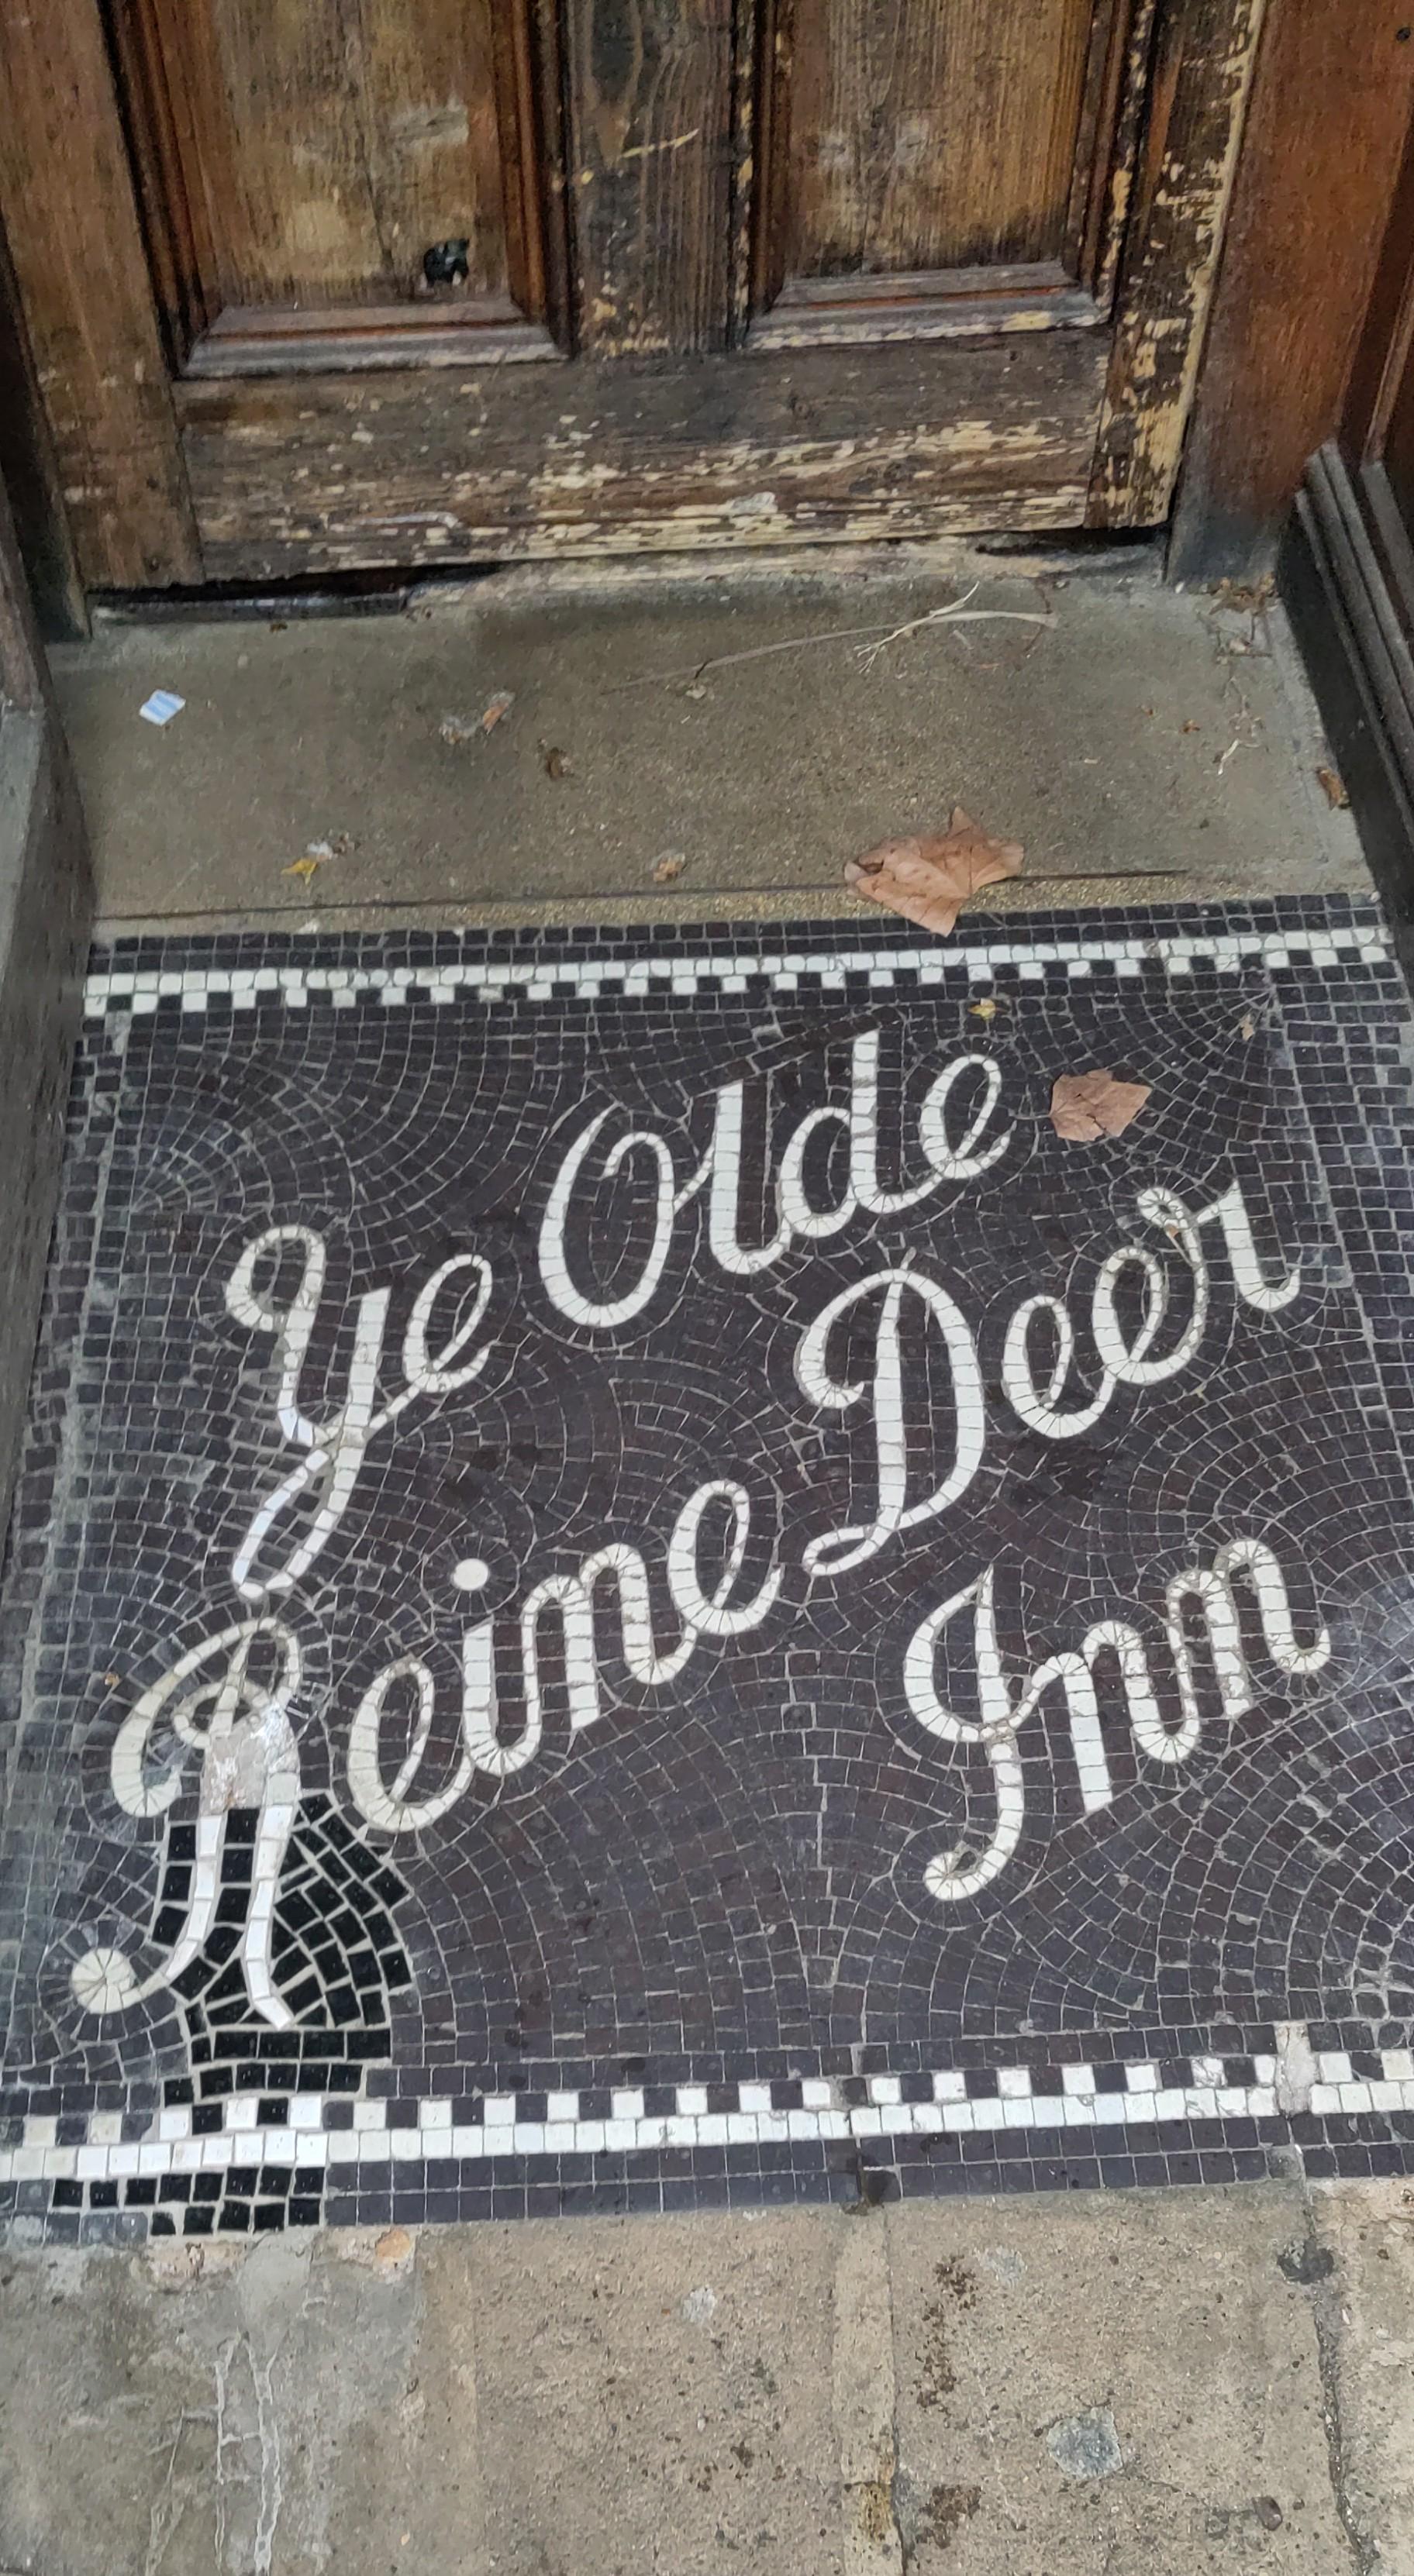 Ye Olde
Reine Deer
Inn